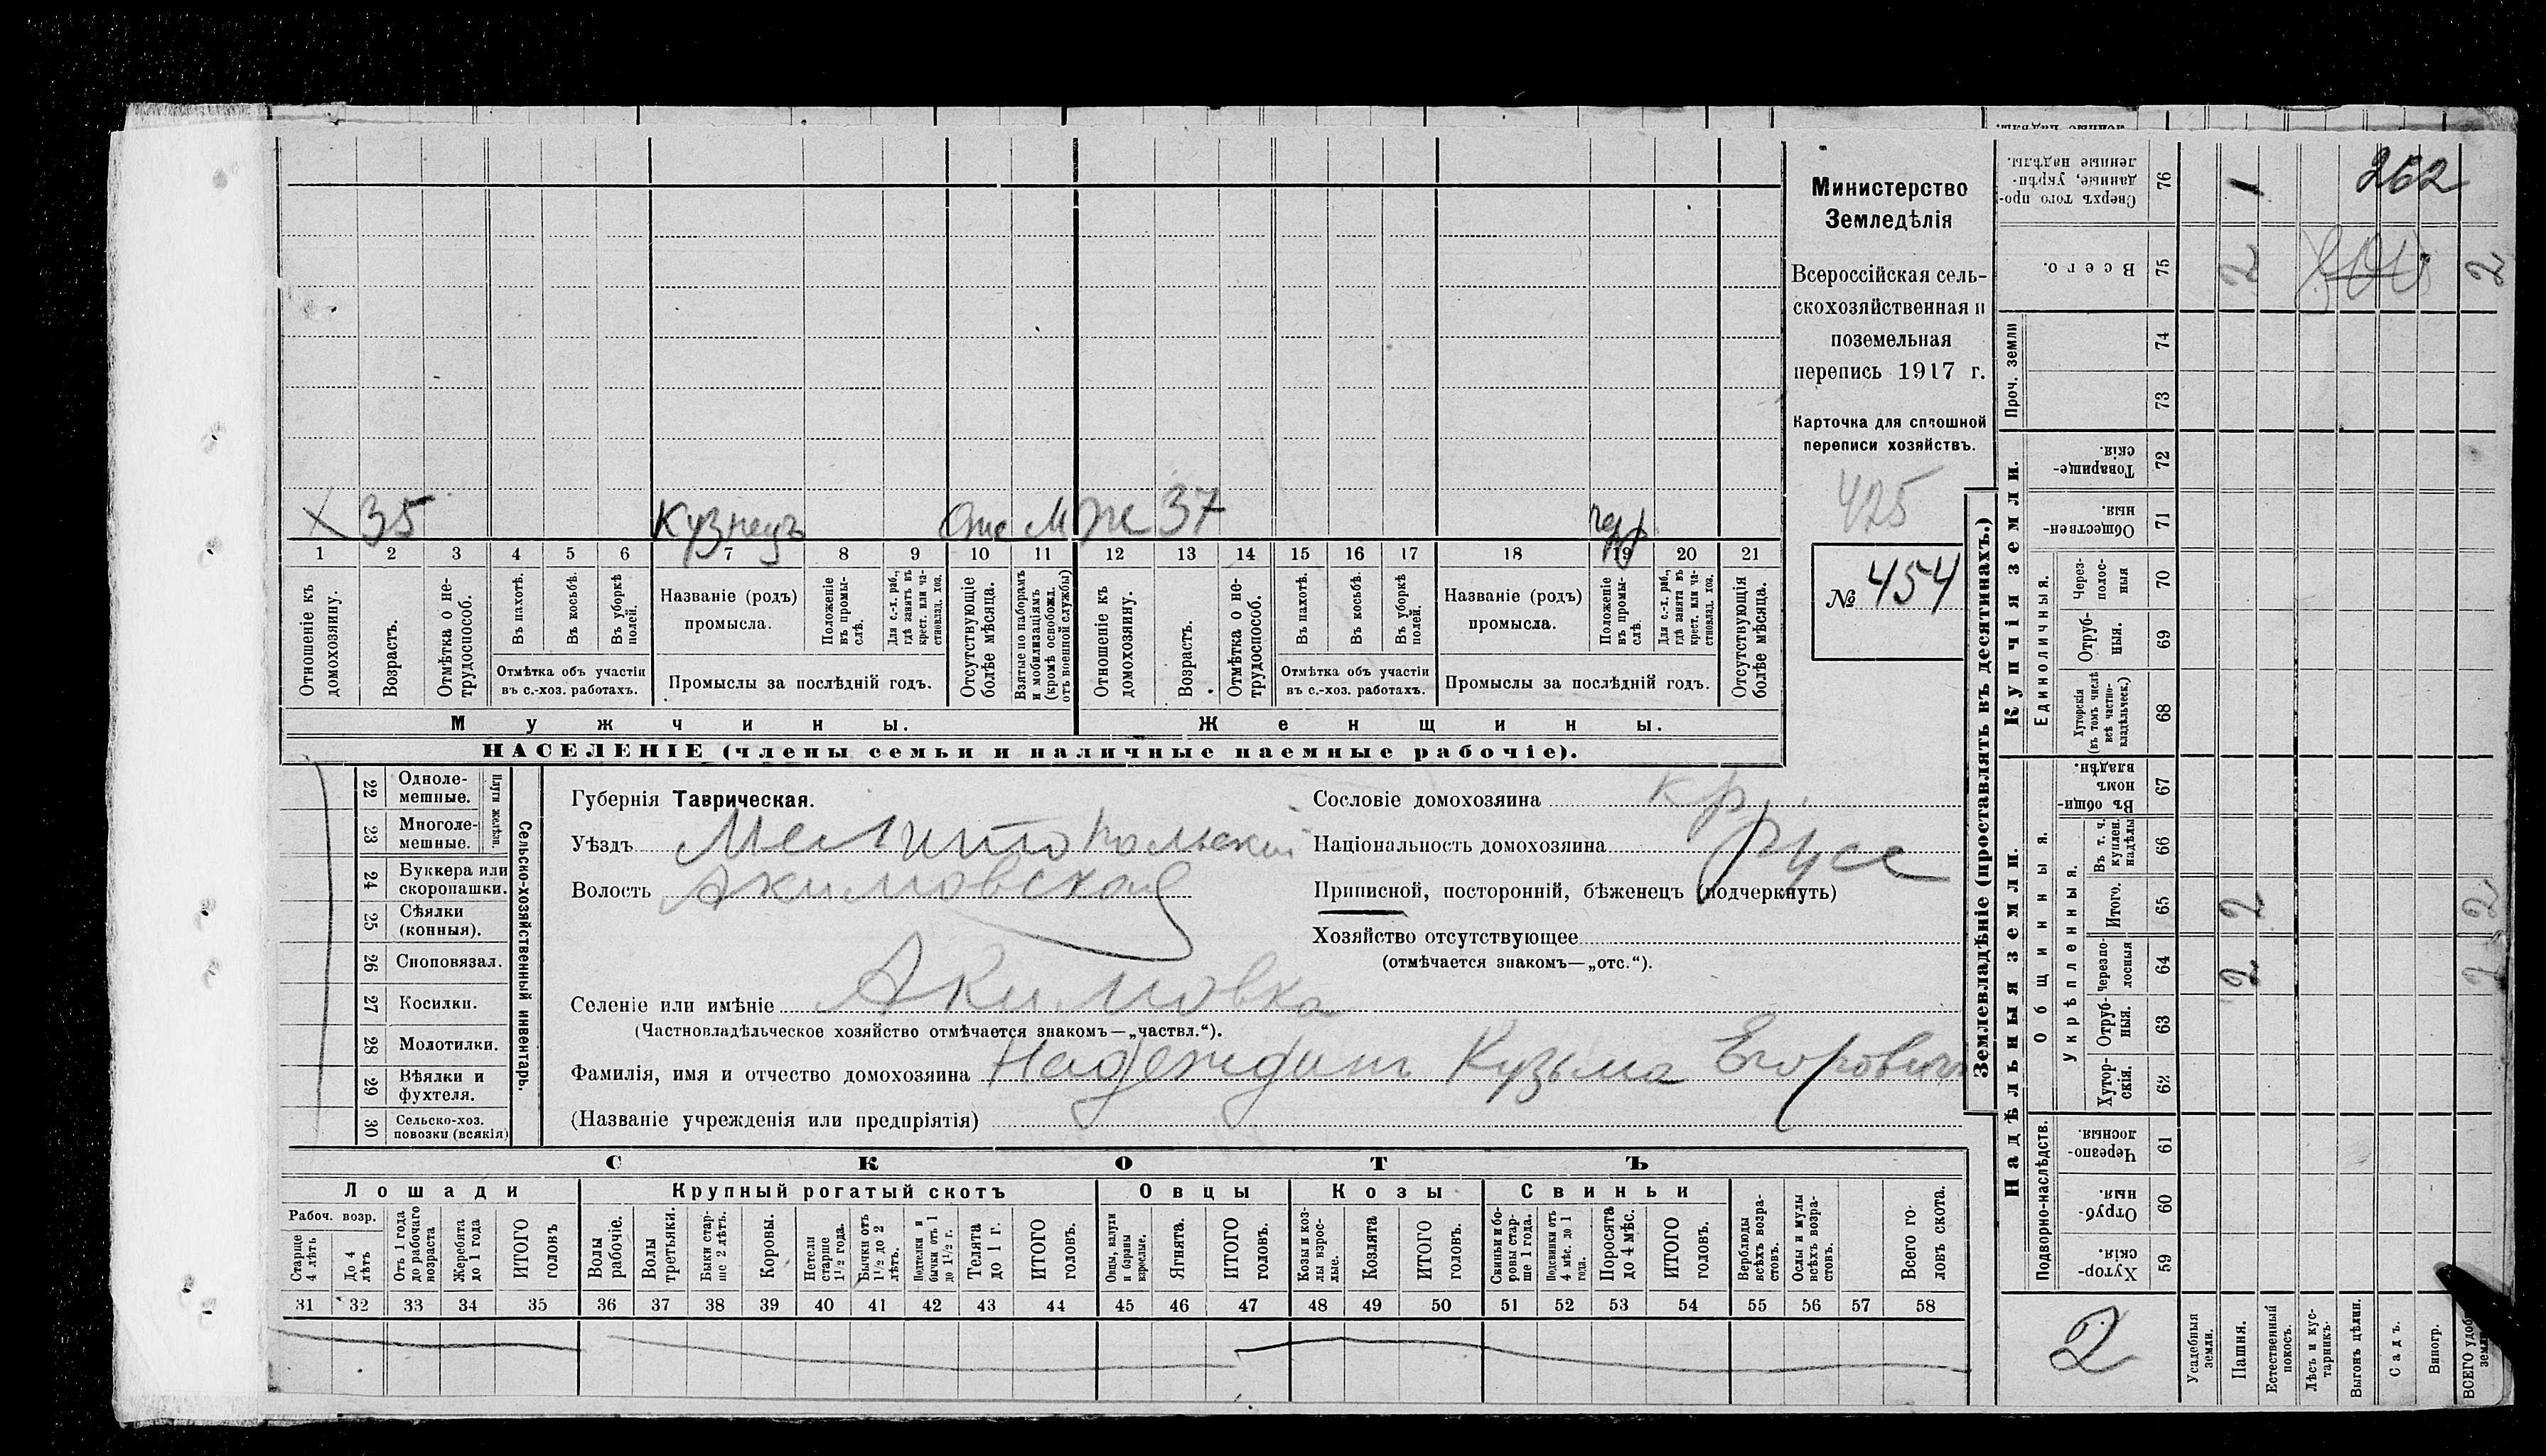 Министерство
Земледѣлія
Всероссійская сель-
скохозяйственная и
поземельная
перепись 1917 г.
Карточка для сплошной
переписи хозяйствъ.
425
№ 454
262
Х 35 Кузнецъ М Ж 37
1 2 3 4 5 6 7 8 9 10 11 12 13 14 15 16 17 18 19 20 21
Отношеніе къ домохозяину.
Возрастъ.
Отмѣтка о не-трудоспособ.
Въ пахотѣ.
Въ косьбѣ.
Въ уборкѣ полей.
Отмѣтка объ участіи
въ с.-хоз. работахъ.
Названіе (родъ)
промысла.
Положеніе въ промы-слѣ.
Для с.-х. раб., гдѣ занятъ въ крест. или ча-стновлад. хоз.
Промыслы за послѣдній годъ.
Отсутствующіе болѣе мѣсяца.
Взятые по наборамъ и мобилизаціямъ (кромѣ освобожд. отъ военной службы)
Отношеніе къ домохозяину.
Возрастъ.
Отмѣтка о не-трудоспособ.
Въ пахотѣ.
Въ косьбѣ.
Въ уборкѣ полей.
Отмѣтка объ участіи
въ с.-хоз. работахъ.
Названіе (родъ)
промысла.
Положеніе въ промы-слѣ.
Для с.-х. раб., гдѣ занята въ крест. или ча-стновлад. хоз.
Промыслы за послѣдній годъ.
Отсутствующія болѣе мѣсяца.
Мужчины. Женщины.
НАСЕЛЕНІЕ (члены семьи и наличные наемные рабочіе).
22 Одноле-мешные.
23 Многоле-мешные.
Плуги желѣзн.
24 Буккера или скоропашки.
25 Сѣялки (конныя).
26 Сноповязал.
27 Косилки.
28 Молотилки.
29 Вѣялки и фухтеля.
30 Сельско-хоз. повозки (всякія)
Сельско-хозяйственный инвентарь.
Губернія Таврическая.
Уѣздъ Мелитопольскій
Волость Акимовская
Селеніе или имѣніе Акимовка
(Частновладѣльческое хозяйство отмѣчается знакомъ—„частвл.“).
Фамилія, имя и отчество домохозяина Надеждин Кузьма Егоровичъ
(Названіе учрежденія или предпріятія)
Сословіе домохозяина кр.
Національность домохозяина Русс
Приписной, посторонній, бѣженецъ (подчеркнуть)
Хозяйство отсутствующее
(отмѣчается знакомъ—„отс.“).
СКОТЪ
Лошади Крупный рогатый скотъ Овцы Козы Свиньи
Рабоч. возр.
Старше 4 лѣтъ
До 4 лѣтъ
Отъ 1 года до рабочаго возраста
Жеребята до 1 года
ИТОГО головъ
Волы рабочіе.
Волы третьяки.
Быки стар-ше 2 лѣтъ.
Коровы.
Нетели старше 1 1/2 года.
Бычки отъ 1 1/2 до 2 лѣтъ.
Подтелки и бычки отъ 1 до 1 1/2 г.
Телята до 1 г.
ИТОГО головъ.
Овцы, валухи и бараны взрослые.
Ягнята.
ИТОГО головъ.
Козы и коз-лы взрос-лые.
Козлята
ИТОГО головъ.
Свиньи и бо-ровы стар-ше 1 года.
Подсвинки отъ 4 мѣс. до 1 года.
Поросята до 4 мѣс.
ИТОГО головъ.
Верблюды всѣхъ возра-стовъ.
Ослы и мулы всѣхъ возра-стовъ.
Всего го-ловъ скота.
31 32 33 34 35 36 37 38 39 40 41 42 43 44 45 46 47 48 49 50 51 52 53 54 55 56 57 58
Землевладѣніе (проставлять въ десятинахъ.)
Купчія земли.
Надѣльныя земли.
Проч. земли
Единоличныя.
Общинныя.
Укрѣпленныя.
Подворно-наслѣдств.
76 Сверхъ того про-данные, укрѣп-ленные надѣлы. 1
75 Всего. 2 2
74
73
72 Товарище-скія.
71 Обществен-ныя.
70 Через-полос-ныя
69 Отруб-ныя.
68 Хуторскія (въ томъ числѣ всѣ частно-владѣльческ.)
67 Въ общин-номъ владѣн.
66 Въ т. ч. куплен. надѣлы
65 Итого. 2 2
64 Черезпо-лосныя 2 2
63 Отруб-ныя.
62 Хутор-скія.
61 Черезпо-лосныя.
60 Отруб-ныя.
59 Хутор-скія.
2
Усадебныя земли.
Пашня.
Естественный покосъ.
Лѣсъ и кус-тарникъ.
Выгонъ цѣлин.
Садъ.
Виногр.
ВСЕГО удоб земли